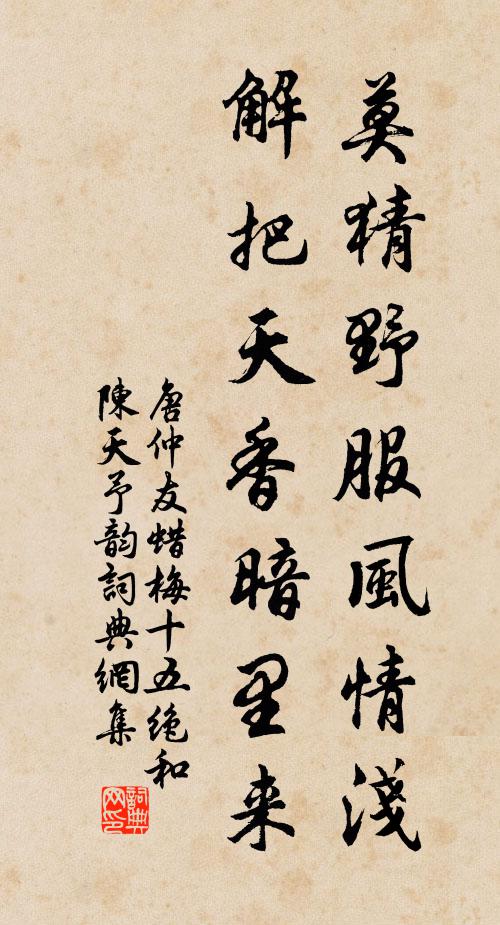 莫猜野服風情淺
解把天香暗里来
唐仲友蜡梅十五绝和
陳天予韵詞典網集
詞典
网印